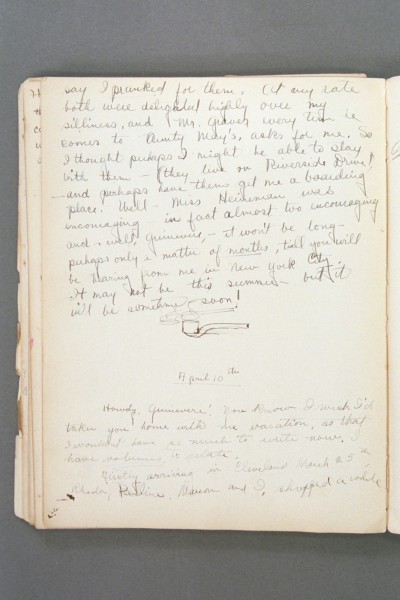 say I pranked for them. At any rate
both were delighted highly over my
silliness, and Mr. Graves every time he
comes to Aunty May's, asks for me. So
I thought perhaps I might be able to stay
with them - (they live on Riverside Drive!
- and perhaps have them get me a boarding
place. Well - Miss Heineman was
encouraging - in fact almost too encouraging
and - well, Guinivere, - it won't be long -
perhaps only a matter of months, till you will
be hearing from me in New York City.
It may not be this summer - but it
will be sometime soon!
April 10th
Howdy, Guinivere! You know I wish I'd
taken you home with me vacation, so that
I wouldn't have as much to write now. I
have volumes to relate.
Firstly arriving in Cleveland March 25th,
Rhoda, Pauline, Marion and I, shopped a while